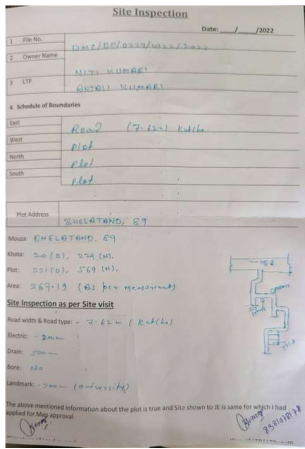 Site Inspection
Date: ___/___/2022
1 File No. DMC/BP/0229/W22/2022
2 Owner Name
NITI KUMARI
3 LTP ANJALI KUMARI
4 Schedule of Boundaries
East Road (7.62m) Kutcha
West Plot
North Plot
South Plot
Plot Address BHELATAND, 59
Mouza: BHELATAND, 59
Khata: 20 (O), 229 (N),
Plot: 569 (N),
Area: 269.19 (As per measurement)
Site Inspection as per Site visit
Road width & Road type: - 7.62m (Katcha)
Electric: - 20m
Drain: 500m
Bore: No
Landmark: - 200m (University)
The above mentioned information about the plot is true and Site shown to JE is same for which I had
applied for Map approval